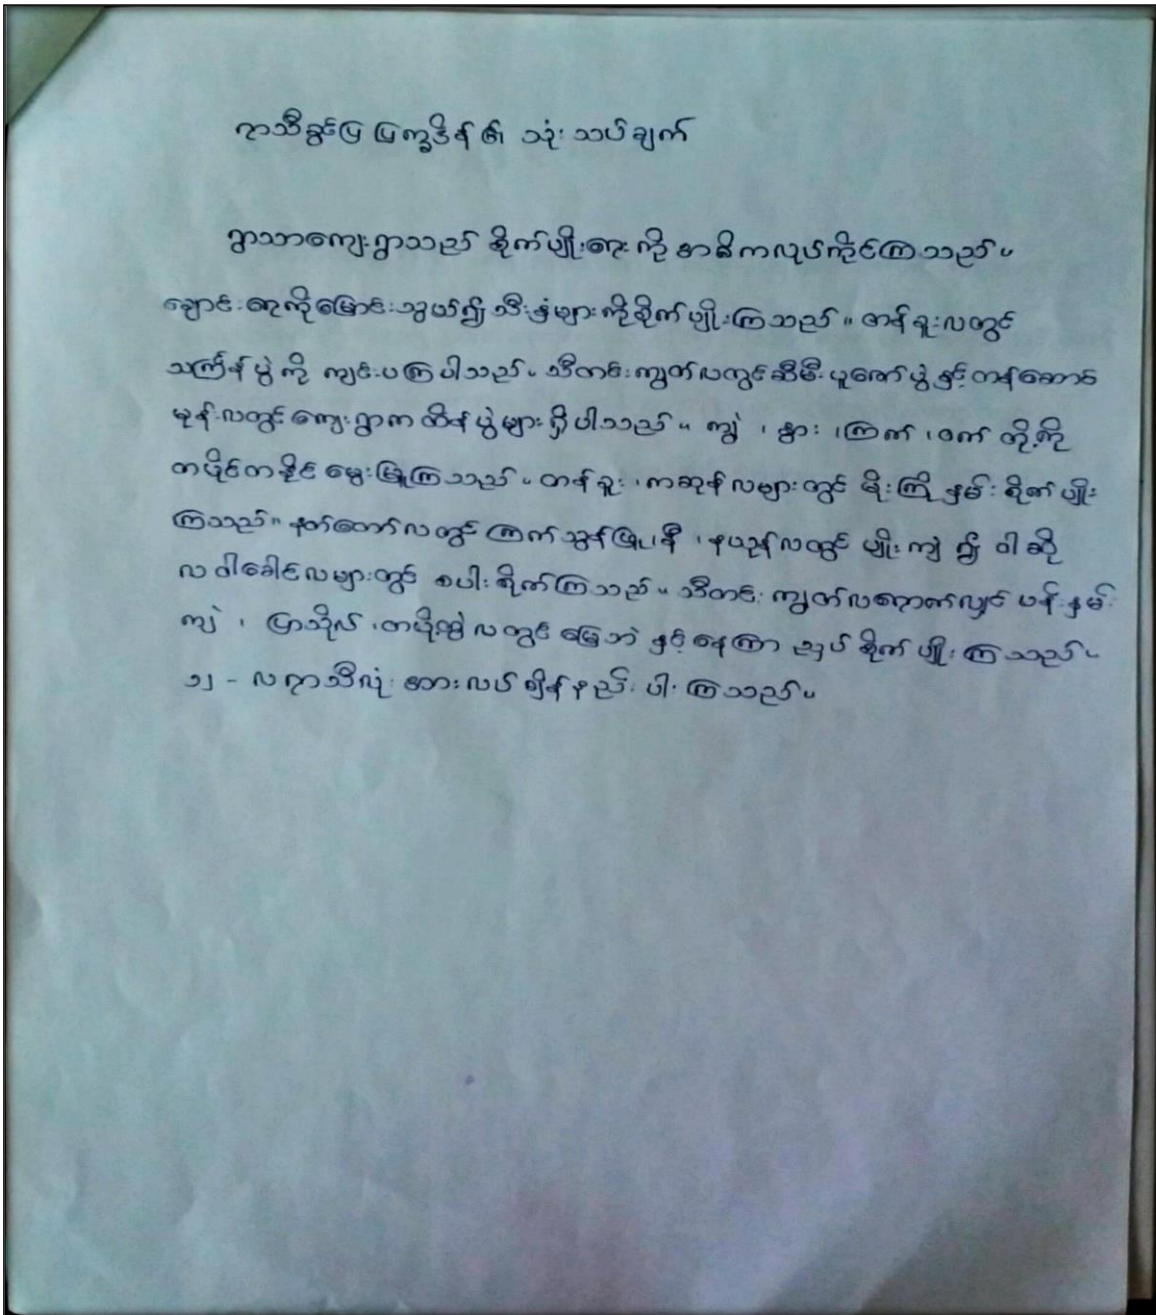 ရာသီခွင်ပြ ပြက္ခဒိန် ၏ သုံး သပ် ချက်
ရွာသာကျေးရွာသည် စိုက်ပျိုးရေး ကို အဓိကလုပ်ကိုင်ကြသည်။
ချောင်းရေကိုမြောင်းသွယ်၍ သီးနှံများကိုစိုက်ပျိုးကြသည်။ တန်ခူးလတွင်
သင်္ကြန်ပွဲကို ကျင်းပကြပါသည်။ သီတင်းကျွတ်လတွင်ဆီမီးပူဇော်ပွဲနှင့်တန်ဆောင်
မုန်းလတွင်ကျေးရွာကထိန်ပွဲများရှိပါသည်။ ကျွဲ ၊ နွား ၊ကြက် ၊ဝက် တို့ကို
တပိုင်တနိုင် မွေးမြူကြသည်။ တန်ခူး ၊ကဆုန်လများတွင် မိုးကြိုနှမ်းစိုက်ပျိုး
ကြသည်။ နတ်တော်လတွင် ကြက်သွန်ဖြူ၊နီ ၊နယုန်လတွင် ပျိုးကျဲ ၍ ဝါဆို
လဝါခေါင်လများတွင် စပါးစိုက်ကြသည်။ သီတင်းကျွတ်လရောက်လျှင် ပန်းနှမ်း
ကျဲ ၊ ပြာသိုလ် ၊တပို့တွဲလတွင် မြေပဲ နှင့် နေကြာ ညှပ်စိုက်ပျိုးကြသည်။
၁၂ - လရာသီလုံး အားလပ်ချိန်နည်းပါးကြသည်။